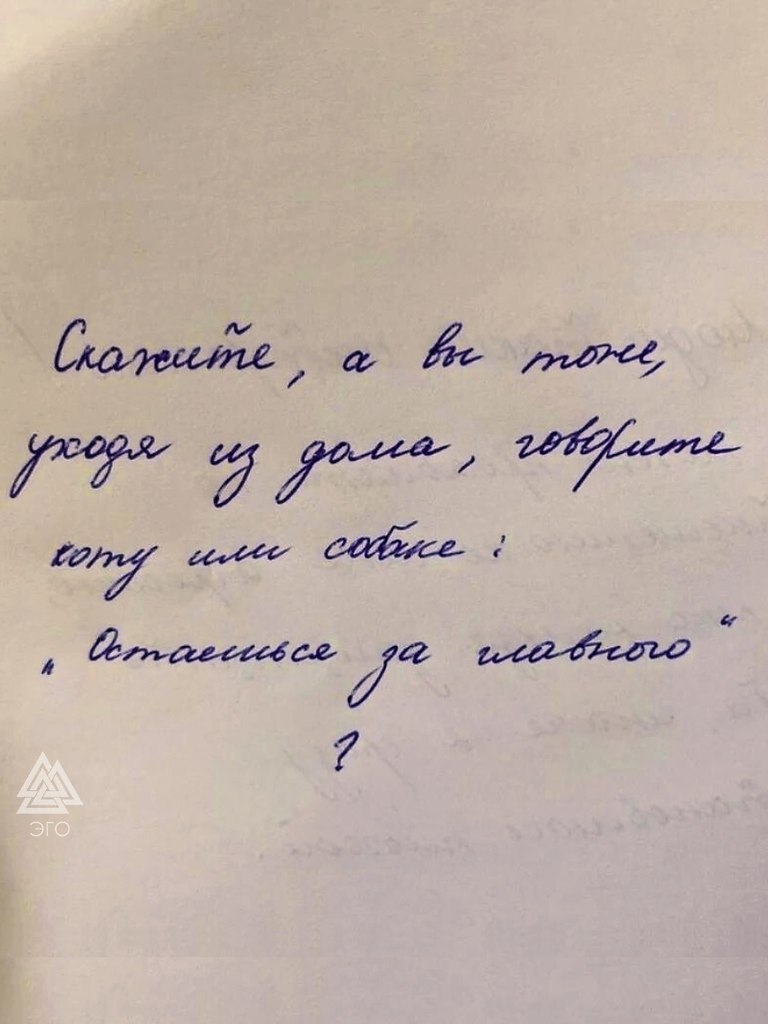 Скажите, а вы тоже,
уходя из дома, говорите
коту или собаке:
„Остаешься за главного“
?
ЭГО